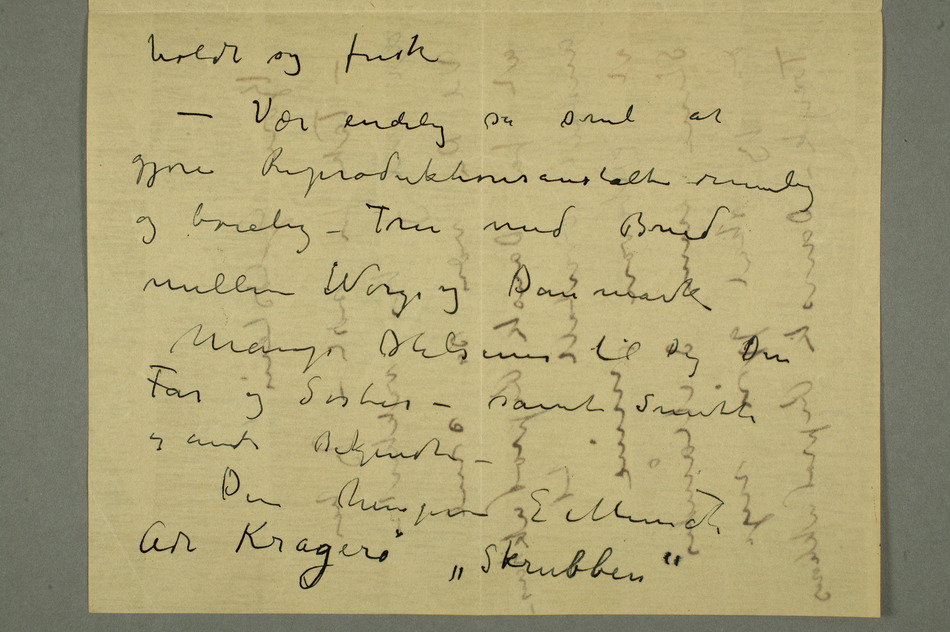 holdt og frisk
— Vær endelig så snil at
gjøre Reproduktionsanstalten rimelig
og hvilig – Tru med Brud
mellem Norge og Danmark
Mange Hilsener til dig Din
Far og Søster – samt Smitt
og andre Bekjendte –
Din hengivne E Munch
Adr Kragerø „Skrubben"